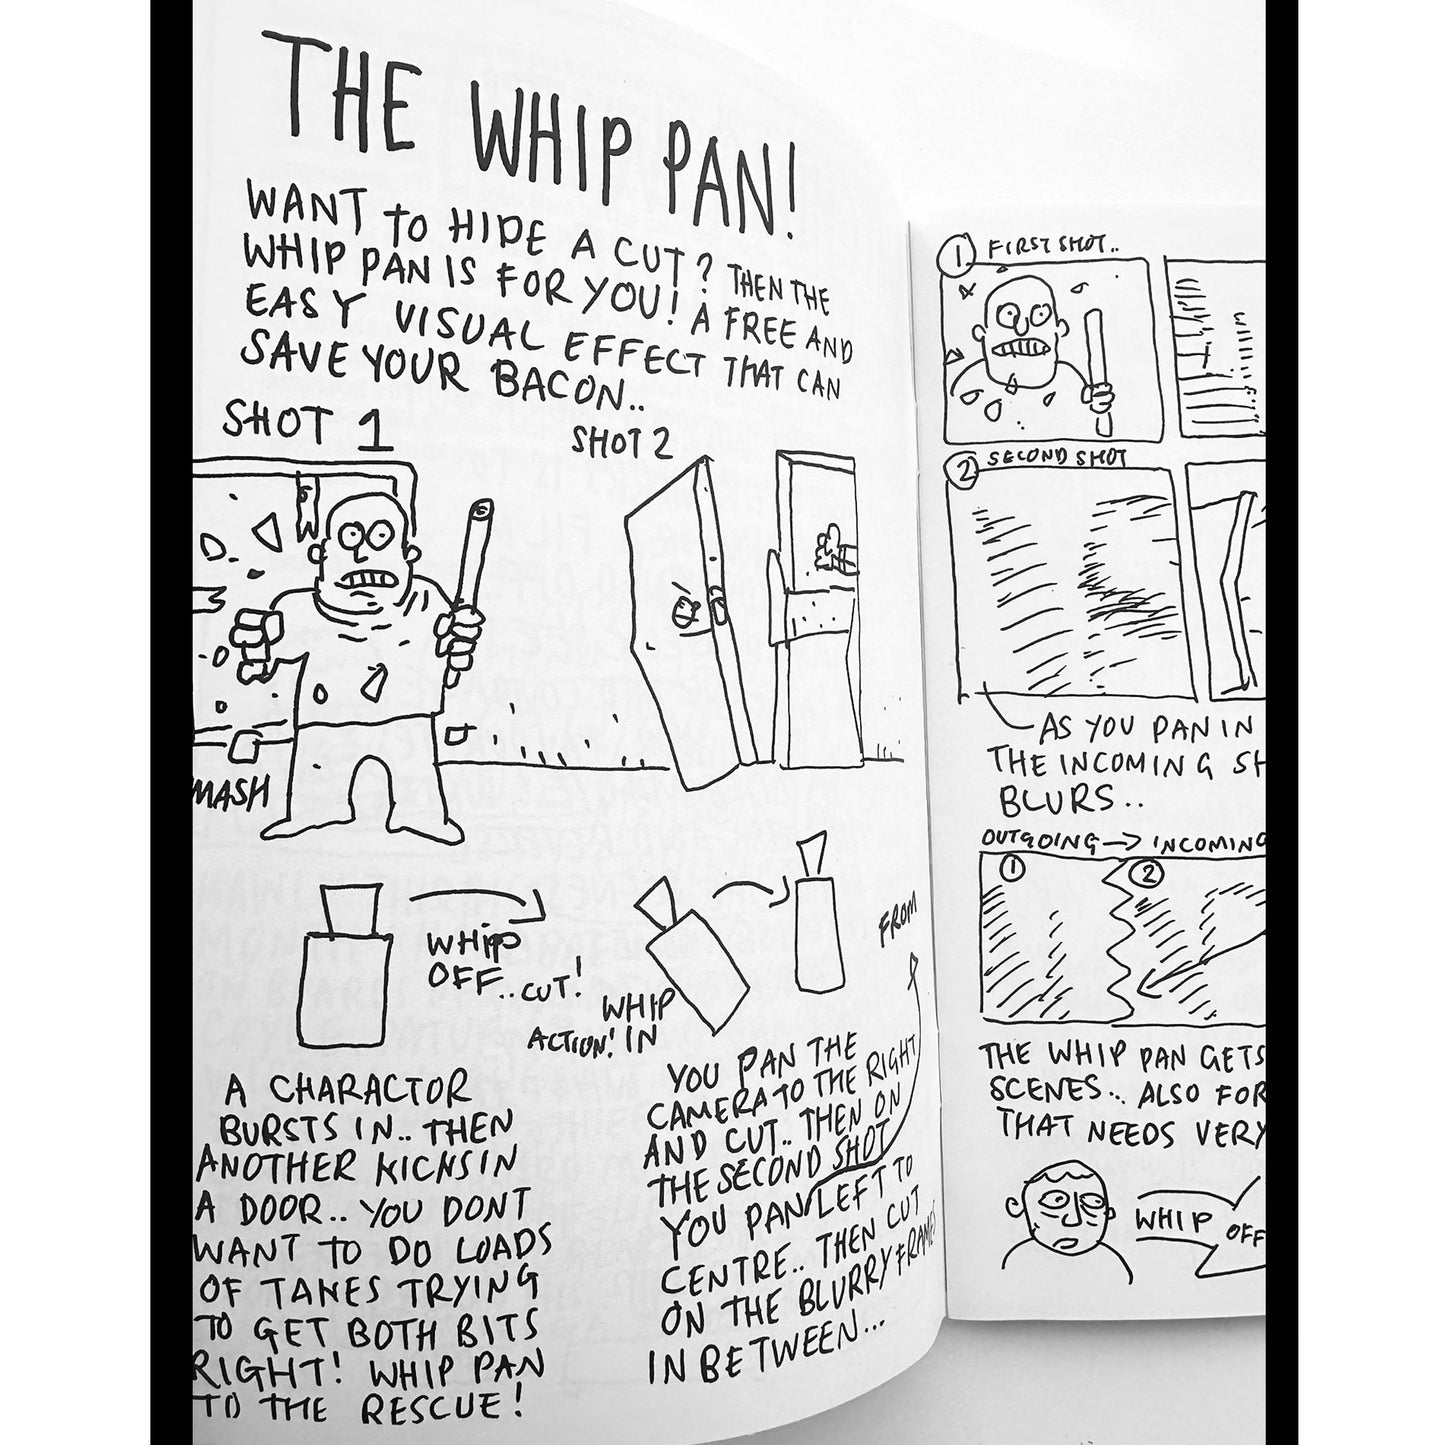 THE WHIP PAN!
WANT TO HIDE A CUT? THEN THE
WHIP PAN IS FOR YOU! A FREE AND
EASY VISUAL EFFECT THAT CAN
SAVE YOUR BACON..
SHOT 1
SHOT 2
MASH
WHIP
OFF..CUT!
WHIP
ACTION! IN
A CHARACTOR
BURSTS IN.. THEN
ANOTHER KICKS IN
A DOOR.. YOU DONT
WANT TO DO LOADS
OF TAKES TRYING
TO GET BOTH BITS
RIGHT! WHIP PAN
TO THE RESCUE!
FROM
YOU PAN THE
CAMERA TO THE RIGHT
AND CUT.. THEN ON
THE SECOND SHOT
YOU PAN LEFT TO
CENTRE.. THEN CUT
ON THE BLURRY FRAMES
IN BETWEEN...
1 FIRST SHOT..
2 SECOND SHOT
AS YOU PAN IN
THE INCOMING SH
BLURS..
OUTGOING → INCOMING
1 2
THE WHIP PAN GETS
SCENES.. ALSO FOR
THAT NEEDS VERY
WHIP OFF